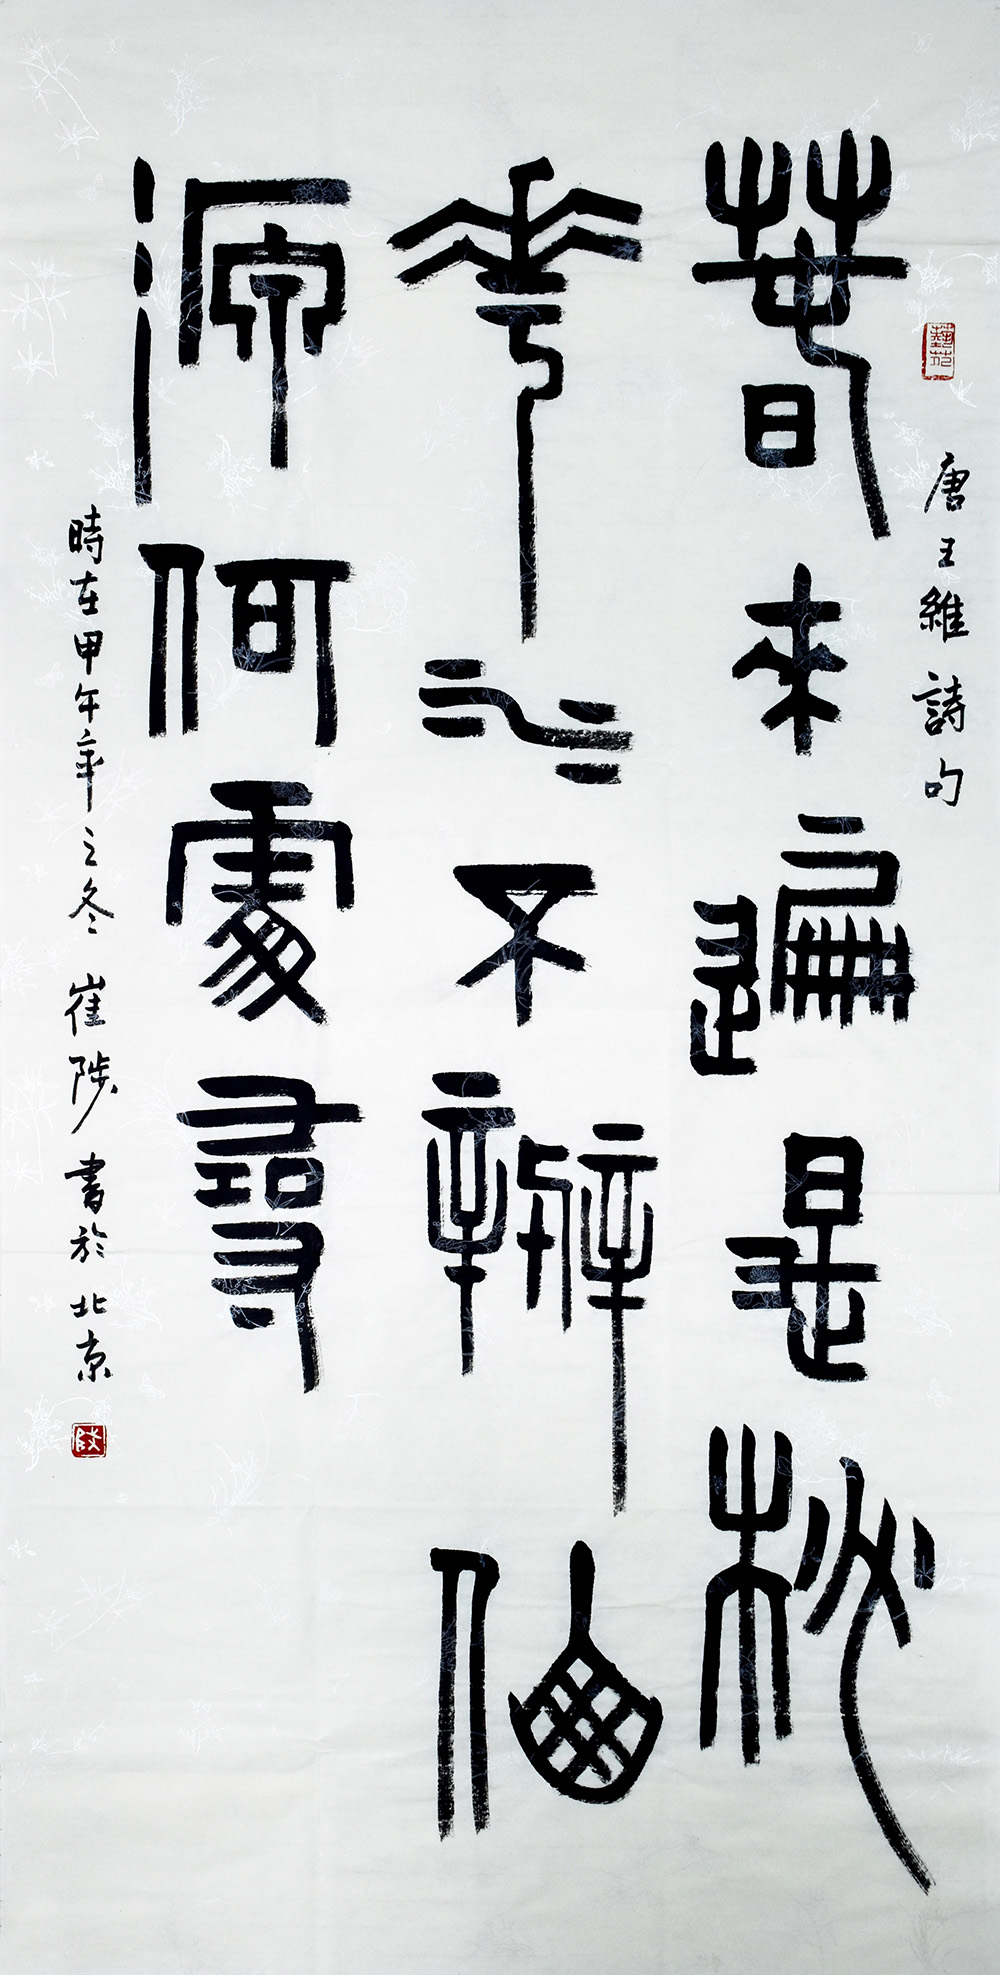 藝苑
唐王維詩句
春來遍是桃
華水不辨仙
源何處尋
時在甲午年之冬 崔陟書於北京
陟